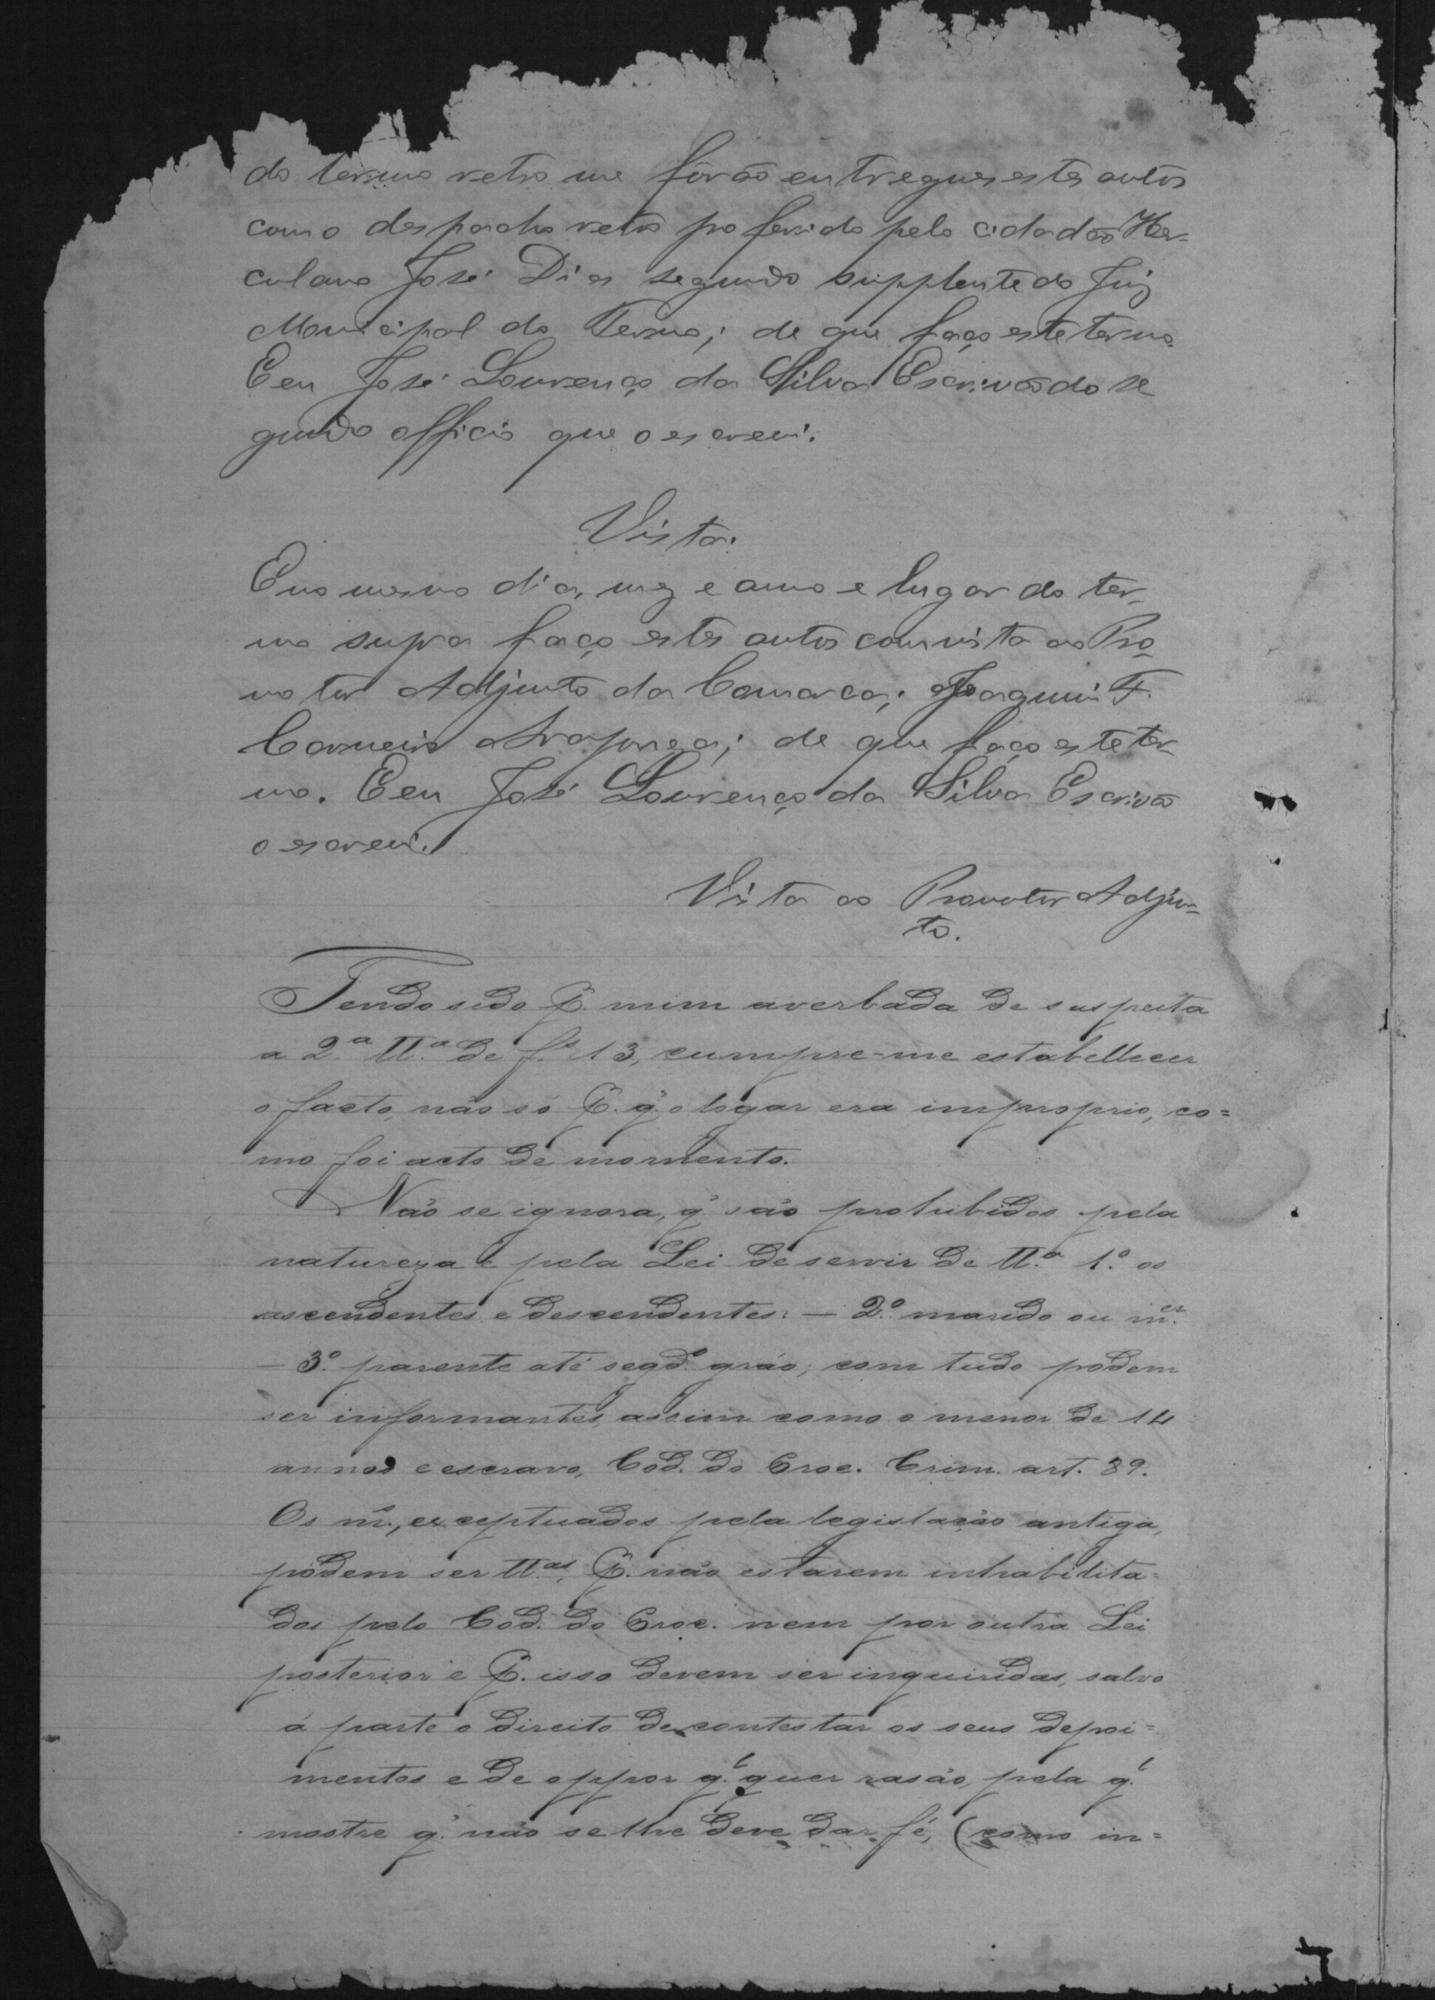 do termo retro me fôrão entregues estes autos
com o despacho retro proferido pelo cidadão Her-
culano José Dias segundo supplente do Juiz
Municipal do Termo; de que faço este termo.
E eu José Lourenço da Silva Escrivão do se
gundo officio que o escrevi.
Vista.
E no mesmo dia, mez e anno e lugar do ter-
mo supra faço estes autos com vista ao Pro-
motor Adjunto da Comarca; Joaquim F.
Carneiro de que faço este ter-
mo. E eu José Lourenço da Silva Escrivão
o escrevi.
Vista ao Promotor Adjun-
to.
Tendo sido P. mim averbada de suspeita
a 2.ª TT.ª de fs 13, cumpre-me estabellecer
o facto, não só P. q̃ o logar era improprio, co=
mo foi acto de momento.
Não se ignora, q̃ são prohibidos pela
natureza e pela Lei de servir de TT.ª 1.º os
ascendentes e descendentes: — 2.º marido ou m.er
— 3.º parente até segd.º gráo; com tudo podem
ser informantes, assim como o menor de 14
annos e escravo, Cod. do Proc. Crim. art. 89.
Os m.s, exceptuados pela legislação antiga,
podem ser TT.as, P. não estarem inhabilita=
dos pelo Cod. do Proc. nem por outra Lei
posterior e P. isso devem ser inquiridas, salvo
á parte o direito de contestar os seus depoi=
mentos e de oppor q.l quer rasão, pela q.l
mostre q̃ não se lhe deve dar fé, (como in=